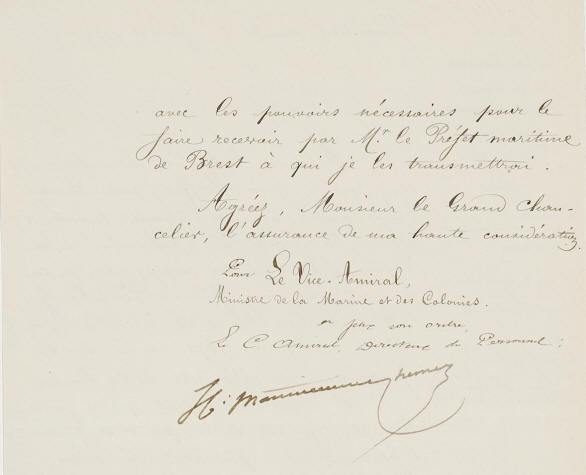 avec les pouvoirs nécessaires pour le
faire recevoir par Mr. le Préfet maritime
de Brest à qui je les transmettrai.
Agréez, Monsieur le Grand Chan-
celier, l'assurance de ma haute considération.
Pour Le Vice-Amiral,
Ministre de la Marine et des Colonies.
et par son ordre,
Le C Amiral, Directeur du Personnel: